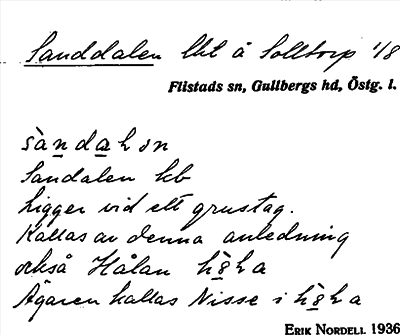 Sanddalen lht å Solltorp 1/8
Flistads sn, Gullbergs hd, Östg. l.
sàndahən
Sandalen kb
Ligger vid ett grustag.
Kallas av denna anledning
också Hålan
Ägaren kallas Nisse i
ERIK NORDELL 1936